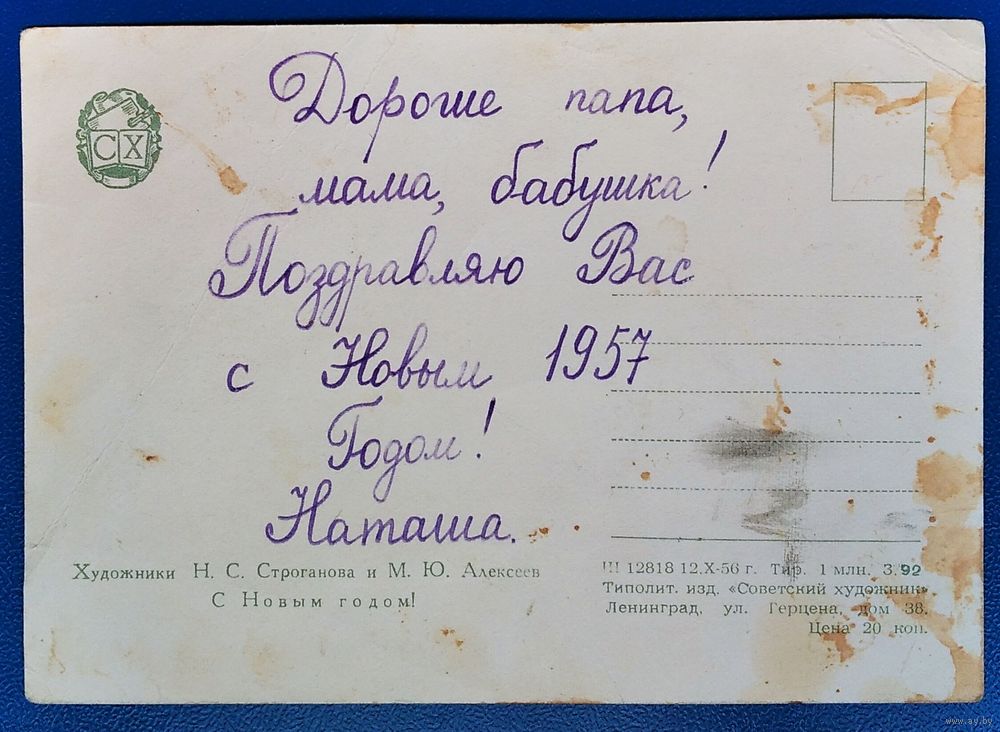 СХ
Дорогие папа,
мама, бабушка!
Поздравляю Вас
с Новым 1957
Годом!
Наташа.
Художники Н. С. Строганова и М. Ю. Алексеев
С Новым годом!
Ш 12818 12.X-56 г. Тир. 1 млн. З.92
Типолит. изд. «Советский художник»
Ленинград, ул. Герцена, дом 38.
Цена 20 коп.
www.ay.by